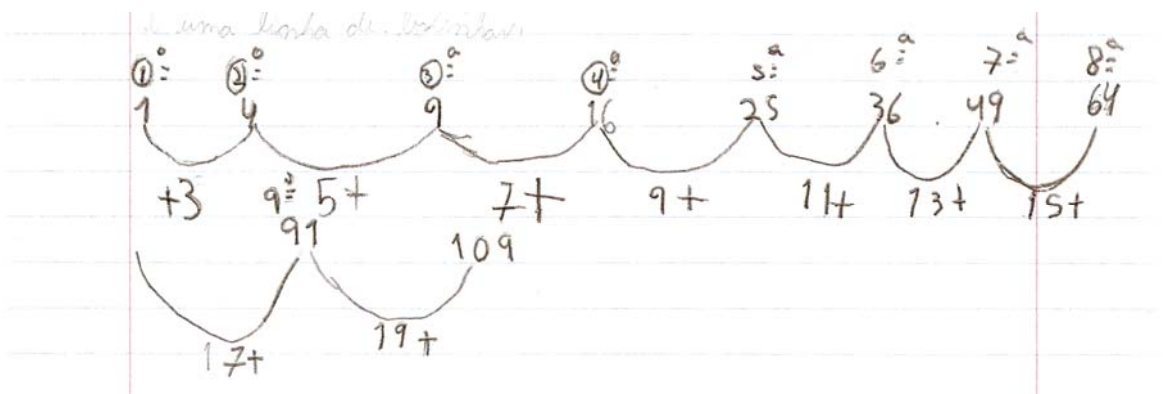 uma linha de bolinhas.
1ª 2ª 3ª 4ª 5ª 6ª 7ª 8ª
1 4 9 16 25 36 49 64
+3 5+ 7+ 9+ 11+ 13+ 15+
9ª
91 109
17+ 19+